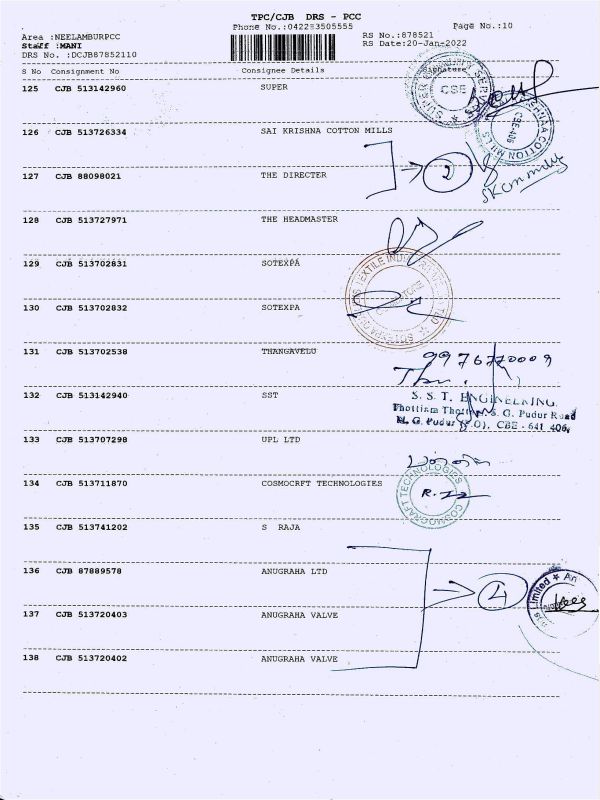 TPC/CJB DRS - PCC
Phone No.:04223505555 Page No.:10
Area :NEELAMBURPCC RS No.:878521
Staff :MANI RS Date:20-Jan-2022
DRS No. :DCJB87852110
S No Consignment No Consignee Details Signature
125 CJB 513142960 SUPER
CBE
126 CJB 513726334 SAI KRISHNA COTTON MILLS
COTTON MILLS
127 CJB 88098021 THE DIRECTER
2
128 CJB 513727971 THE HEADMASTER
129 CJB 513702831 SOTEXPA
130 CJB 513702832 SOTEXPA
131 CJB 513702538 THANGAVELU
9976770009
132 CJB 513142940 SST
S. S. T. ENGINEERING,
Thottiam Thottam, S. G. Pudur Road
M. G. Pudur (P.O), CBE - 641 406.
133 CJB 513707298 UPL LTD
134 CJB 513711870 COSMOCRFT TECHNOLOGIES
COSMOCRAFT TECHNOLOGIES
135 CJB 513741202 S RAJA
136 CJB 87889578 ANUGRAHA LTD
4
137 CJB 513720403 ANUGRAHA VALVE
138 CJB 513720402 ANUGRAHA VALVE